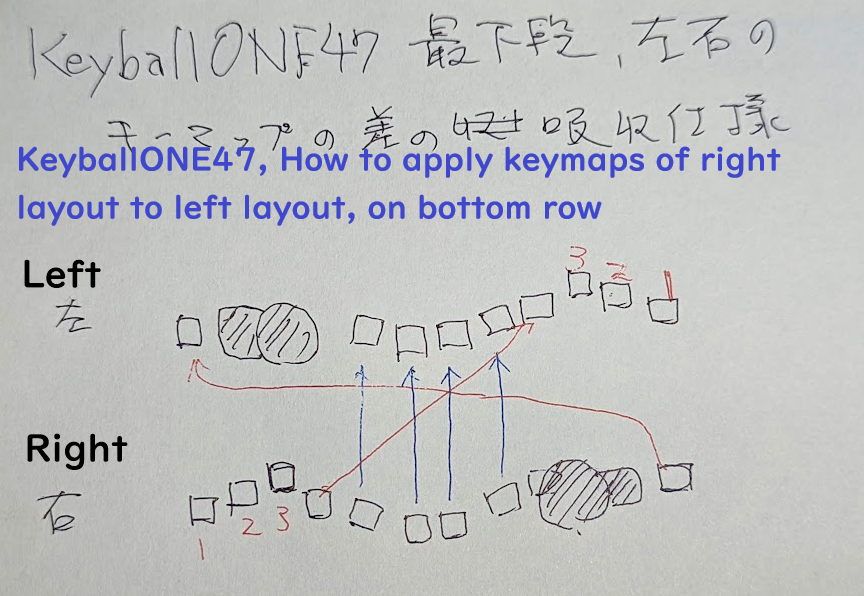 KeyballONE47 最下段、左右の
キーマップの差の 吸収仕様
KeyballONE47, How to apply keymaps of right
layout to left layout, on bottom row
3 2 1
Left
左
Right
右
1 2 3